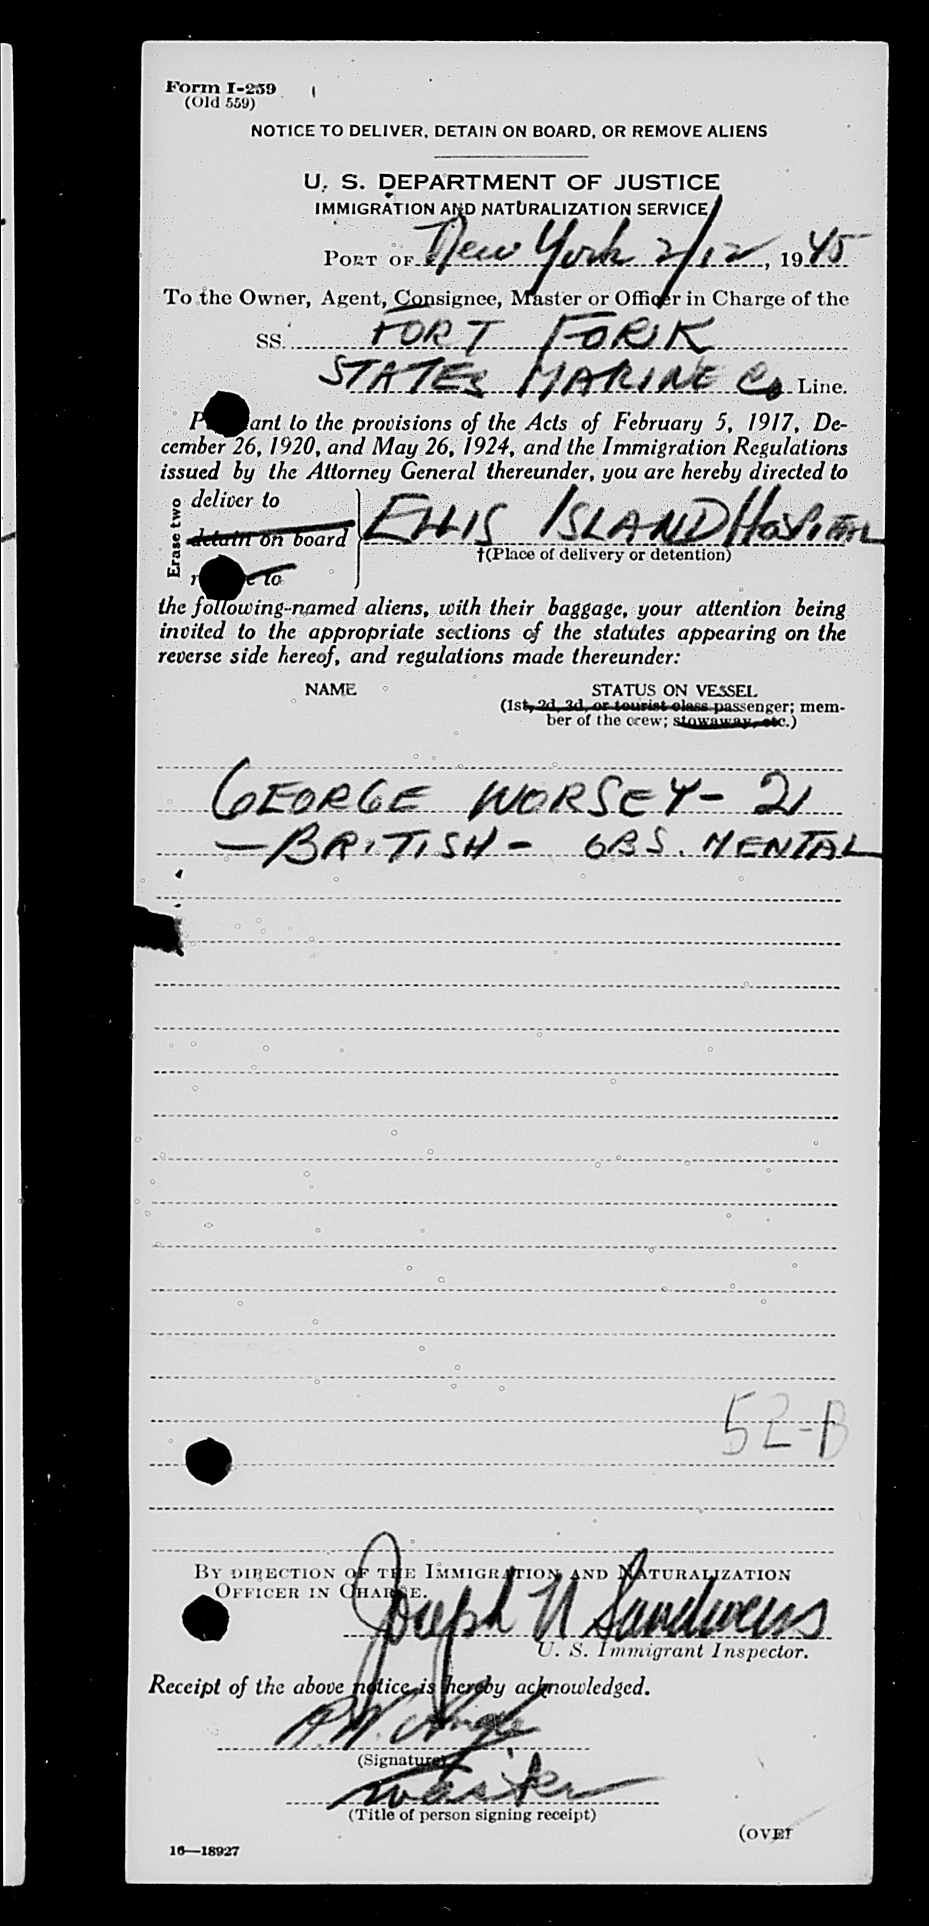 Form I-259
(Old 559)
NOTICE TO DELIVER, DETAIN ON BOARD, OR REMOVE ALIENS
U. S. DEPARTMENT OF JUSTICE
IMMIGRATION AND NATURALIZATION SERVICE
PORT OF New York 2/12, 1945
To the Owner, Agent, Consignee, Master or Officer in Charge of the
SS. FORT FORK
STATES MARINE Co Line.
P ant to the provisions of the Acts of February 5, 1917, De-
cember 26, 1920, and May 26, 1924, and the Immigration Regulations
issued by the Attorney General thereunder, you are hereby directed to
Erase two
deliver to
detain on board
ELLIS ISLAND HOSPITAL
†(Place of delivery or detention)
r e to
the following-named aliens, with their baggage, your attention being
invited to the appropriate sections of the statutes appearing on the
reverse side hereof, and regulations made thereunder:
NAME STATUS ON VESSEL
(1st, 2d, 3d, or tourist class passenger; mem-
ber of the crew; stowaway, etc.)
GEORGE WORSEY - 21
- BRITISH - OBS. MENTAL
52-B
BY DIRECTION OF THE IMMIGRATION AND NATURALIZATION
OFFICER IN CHARGE.
Joseph
U. S. Immigrant Inspector.
Receipt of the above notice is hereby acknowledged.
(Signature)
(Title of person signing receipt)
(OVER
16—18927